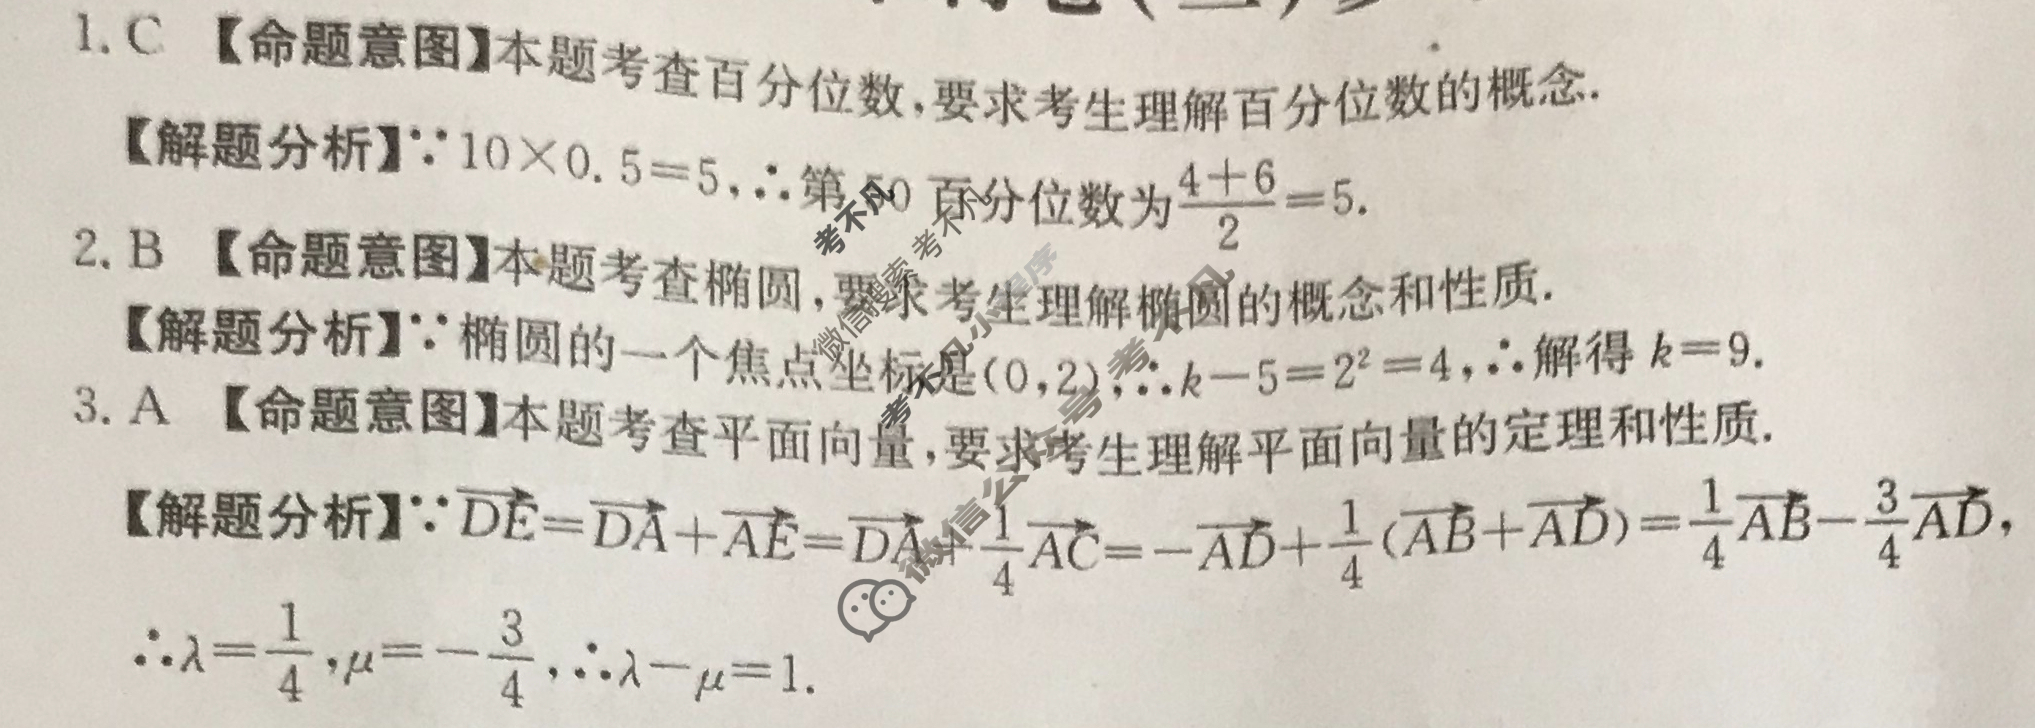 1. C 【命题意图】本题考查百分位数,要求考生理解百分位数的概念.
【解题分析】∵10×0.5=5,∴第50百分位数为\frac{4+6}{2}=5.
2. B 【命题意图】本题考查椭圆,要求考生理解椭圆的概念和性质.
【解题分析】∵椭圆的一个焦点坐标是(0,2),∴k-5=2²=4,∴解得k=9.
3. A 【命题意图】本题考查平面向量,要求考生理解平面向量的定理和性质.
【解题分析】∵\overrightarrow{DE}=\overrightarrow{DA}+\overrightarrow{AE}=\overrightarrow{DA}+\frac{1}{4}\overrightarrow{AC}=-\overrightarrow{AD}+\frac{1}{4}(\overrightarrow{AB}+\overrightarrow{AD})=\frac{1}{4}\overrightarrow{AB}-\frac{3}{4}\overrightarrow{AD},
∴λ=\frac{1}{4},μ=-\frac{3}{4},∴λ-μ=1.
考不凡
微信搜索 考不凡
考不凡小程序
微信公众号 考不凡